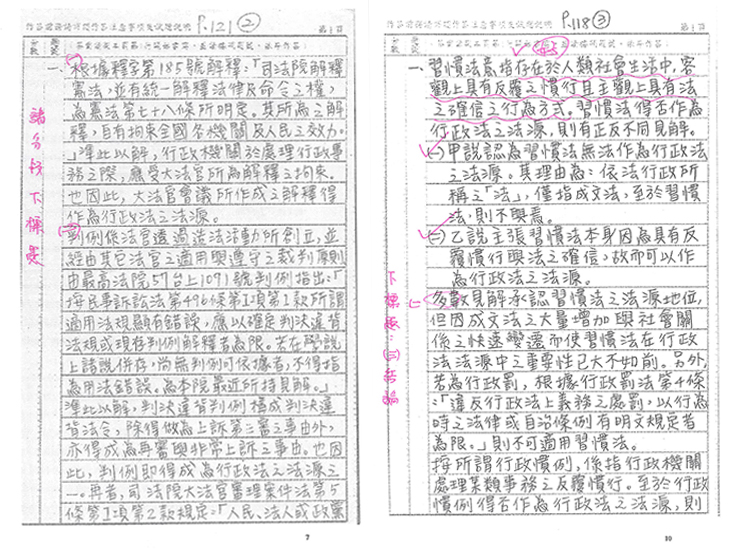 P.121 ②
一、根據釋字第185號解釋:「司法院解釋
憲法,並有統一解釋法律及命令之權,
為憲法第七十八條所明定。其所為之解
釋,自有拘束全國各機關及人民之效力。
」準此以解,行政機關於處理行政事
務之際,應受大法官所為解釋之拘束。
也因此,大法官會議所作成之解釋得
作為行政法之法源。
(二)
判例係法官透過造法活動所創立,並
經由其它法官之適用與遵守之裁判原則
由最高法院57台上1091號判例指出:「
按民事訴訟法第496條第1項第1款所謂
適用法規顯有錯誤,應以確定判決違背
法規或現存判例解釋者為限。若在學說
上諸說併存,尚無判例可依據者,不得指
為用法錯誤。為本院最近所持見解。」
準此以解,判決違背判例構成判決違
背法令,除得做為上訴第三審之事由外,
亦得成為再審與非常上訴之事由。也因
此,判例即得成為行政法之法源之
一。再者,司法院大法官審理案件法第5
條第1項第2款規定:「人民、法人或政黨
請分段下標題
7
P.118 ③
一、習慣法意指存在於人類社會生活中,客
觀上具有反覆之慣行且主觀上具有法
之確信之行為方式。習慣法得否作為
行政法之法源,則有正反不同見解。
(一)甲說認為習慣法無法作為行政法
之法源。其理由為:依法行政所
稱之「法」,僅指成文法,至於習慣
法,則不與焉。
(二)乙說主張習慣法本身因為具有反
覆慣行與法之確信,故而可以作
為行政法之法源。
多數見解承認習慣法之法源地位,
但因成文法之大量增加與社會關
係之快速變遷而使習慣法在行政
法法源中之重要性已大不如前。另外,
若為行政罰,根據行政罰法第4條
:「違反行政法上義務之處罰,以行為
時之法律或自治條例有明文規定者
為限。」則不可適用習慣法。
按所謂行政慣例,係指行政機關
處理某類事務之反覆慣行。至於行政
慣例得否作為行政法之法源,則
下標題:(三)結論